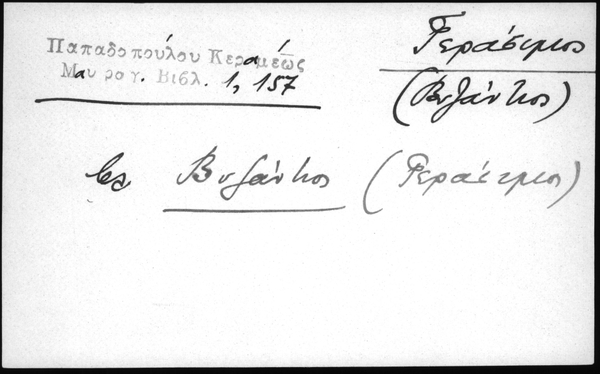 Παπαδοπούλου Κεραμέως
Μαυρογ. Βιβλ. 1, 157
Γεράσιμος
(Βυζάντιος)
Βλ Βυζάντιος (Γεράσιμος)